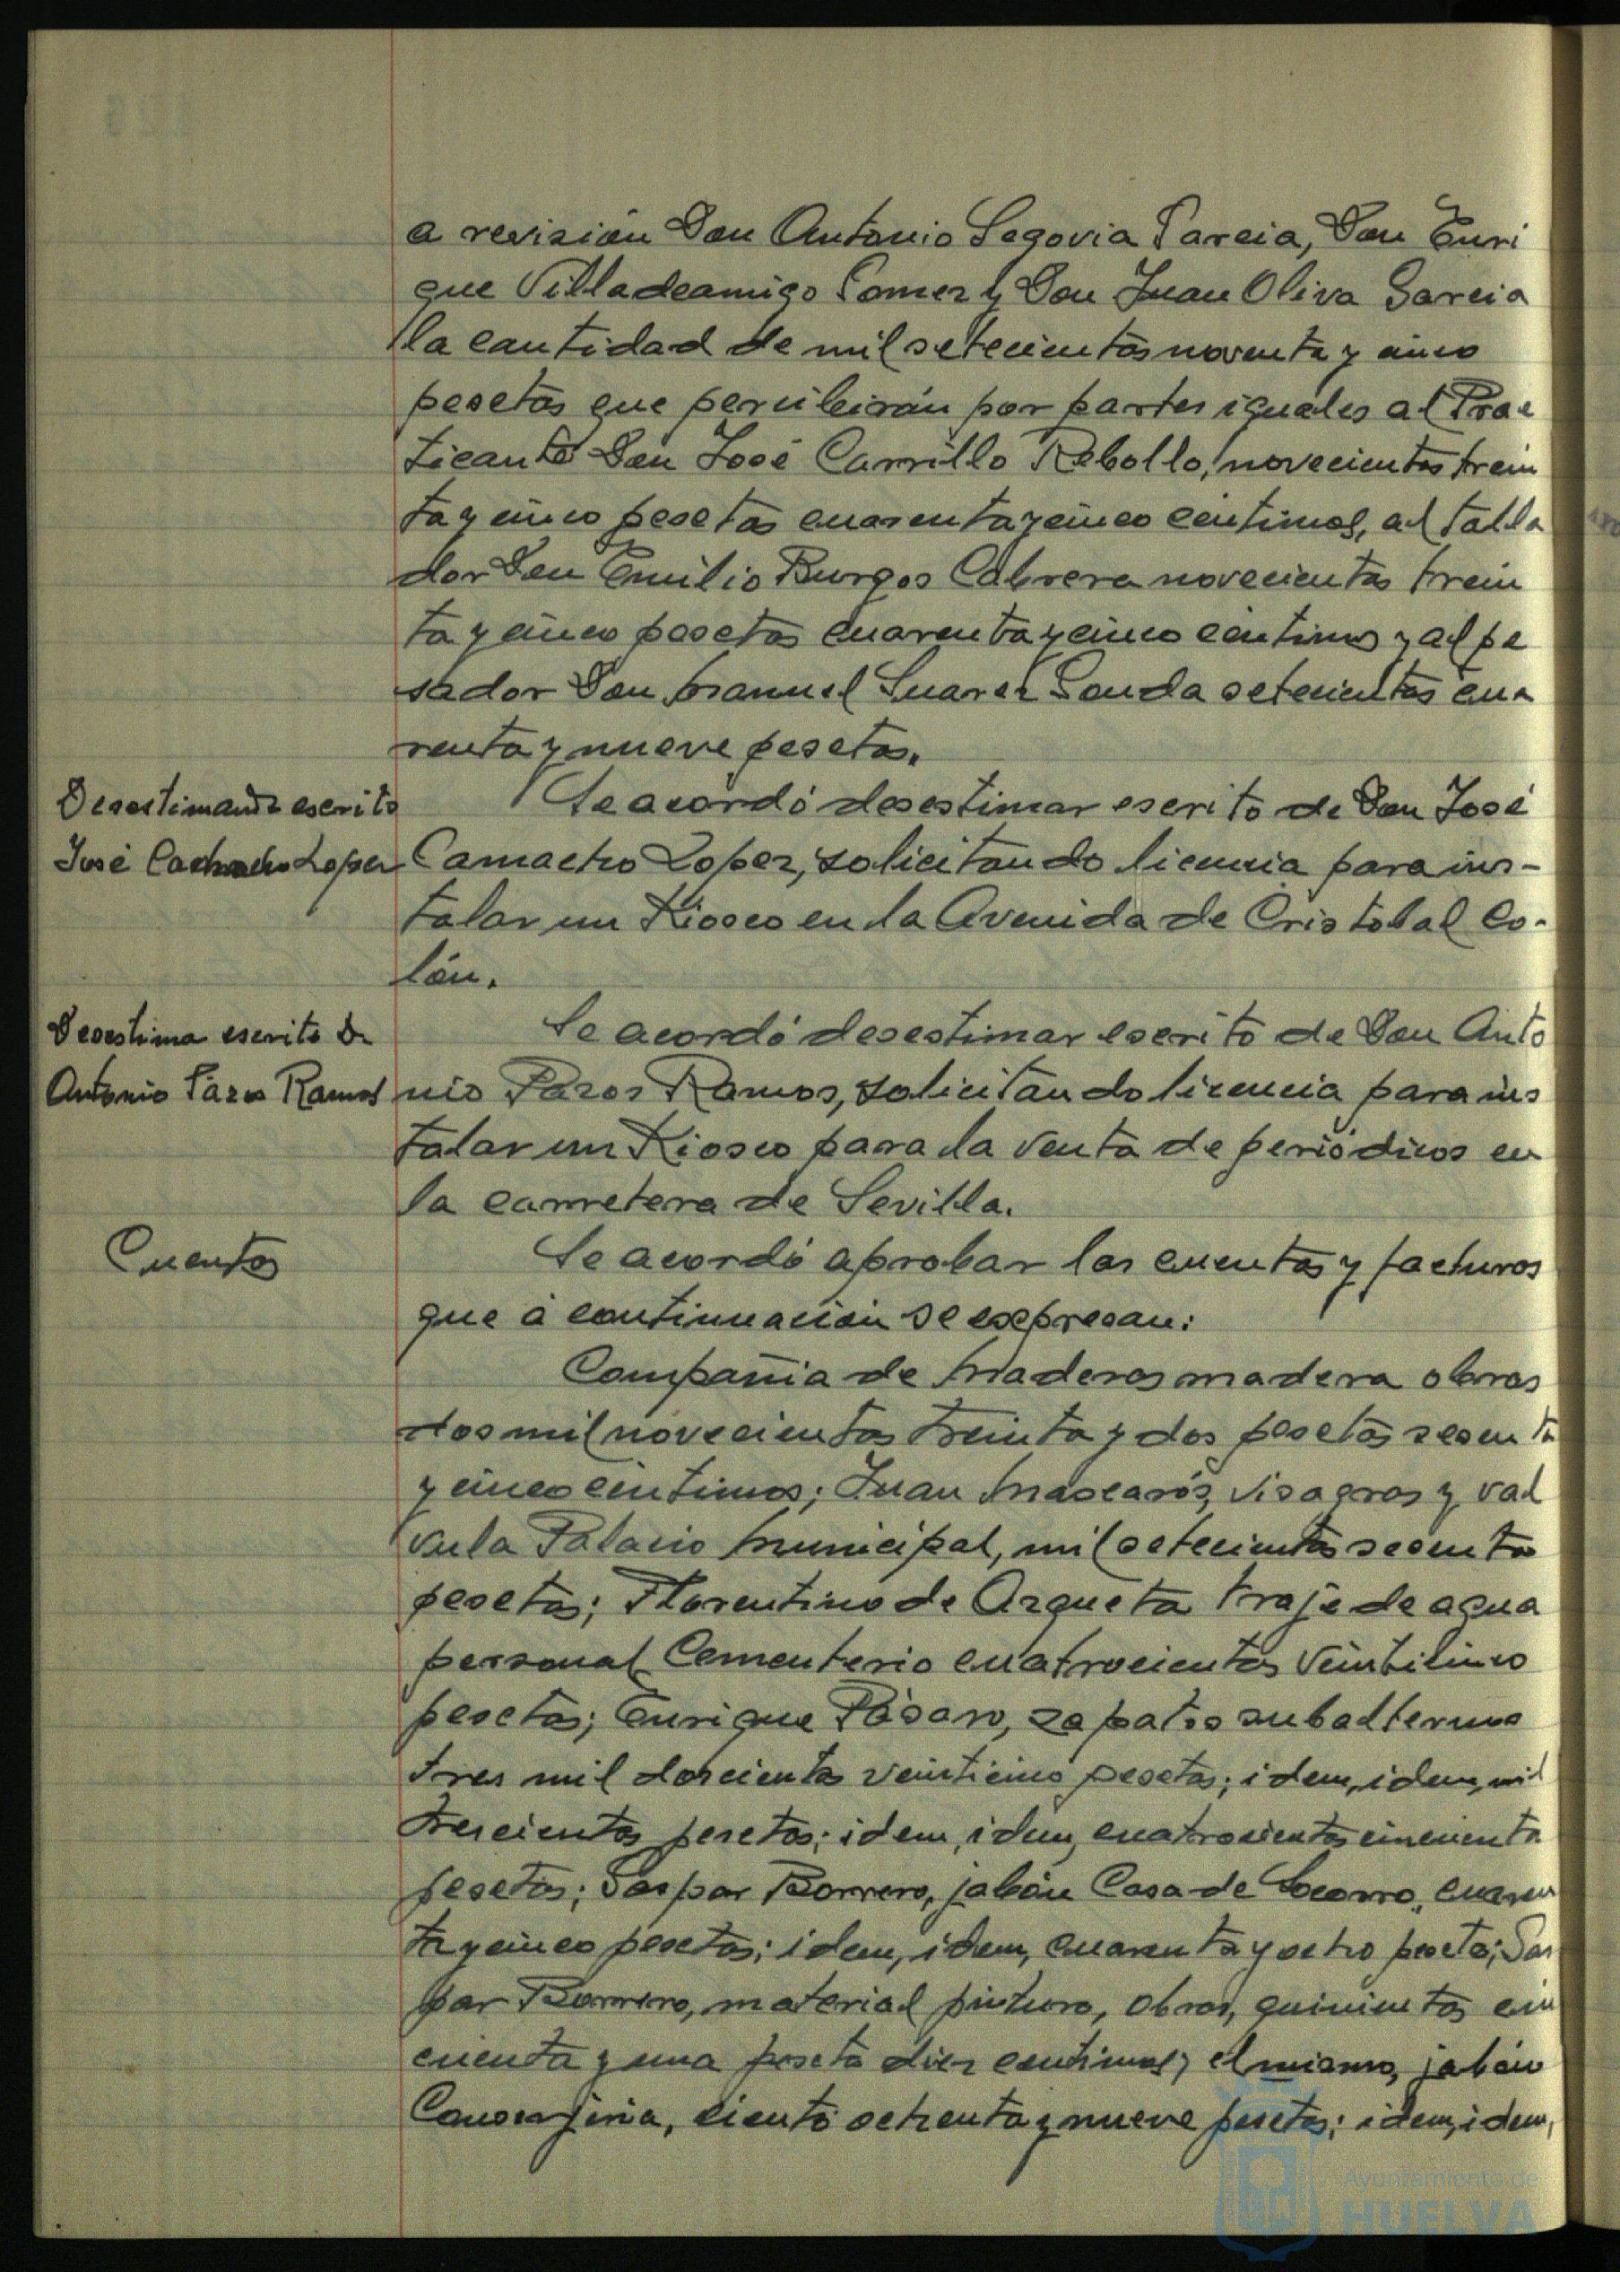 a revisión Don Antonio Segovia Garcia, Don Enri
que Villadeamigo Gomez y Don Juan Oliva Garcia
la cantidad de mil setecientas noventa y cinco
pesetas que percibirán por partes iguales al Prac
ticante Don José Carrillo Rebollo, novecientas trein
ta y cinco pesetas cuarenta y cinco centimos, al talla
dor Don Emilio Burgos Cabrera novecientas trein
ta y cinco pesetas cuarenta y cinco centimos y al pe
sador Don Manuel Suarez setecientas cua
renta y nueve pesetas.
Desestimando escrito
José Camacho Lopez
Se acordó desestimar escrito de Don José
Camacho Lopez, solicitando licencia para ins-
talar un Kiosco en la Avenida de Cristobal Co-
lón.
Desestima escrito de
Antonio Pazos Ramos
Se acordó desestimar escrito de Don Anto
nio Pazos Ramos, solicitando licencia para ins
talar un Kiosco para la venta de periódicos en
la carretera de Sevilla.
Cuentas
Se acordó aprobar las cuentas y facturas
que á continuación se expresan:
Compañia de Maderas madera obras
dos mil novecientas treinta y dos pesetas sesenta
y cinco centimos; Juan Mascarós, visagras y val
vula Palacio Municipal, mil setecientas sesenta
pesetas; Florentino de Azqueta traje de agua
personal Cementerio cuatrocientas veinticinco
pesetas; Enrique Pásaro, zapatos subalternos
tres mil doscientas veinticinco pesetas; idem, idem, mil
trescientas pesetas; idem, idem, cuatrocientas cincuenta
pesetas; Gaspar Borrero, jabón Casa de Socorro, cuaren
ta y cinco pesetas; idem, idem, cuarenta y ocho pesetas; Gas
par Borrero, material pintura, obras, quinientas cin
cuenta y una peseta diez centimos; el mismo, jabón
Conserjeria, ciento ochenta y nueve pesetas; idem, idem,
Ayuntamiento de
HUELVA